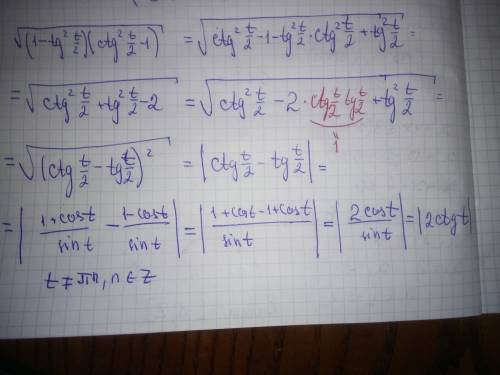 √((1-tg² t/2)(ctg² t/2 -1)) = √(ctg² t/2 -1-tg² t/2 · ctg² t/2 + tg² t/2) =
= √(ctg² t/2 + tg² t/2 -2) = √(ctg² t/2 - 2 · ctg t/2 tg t/2 + tg² t/2) =
1
= √((ctg t/2 - tg t/2)²) = |ctg t/2 - tg t/2| =
= |(1+cost)/sint - (1-cost)/sint| = |(1+cost-1+cost)/sint| = |2cost/sint| = |2ctgt|
t ≠ πn, n ∈ Z